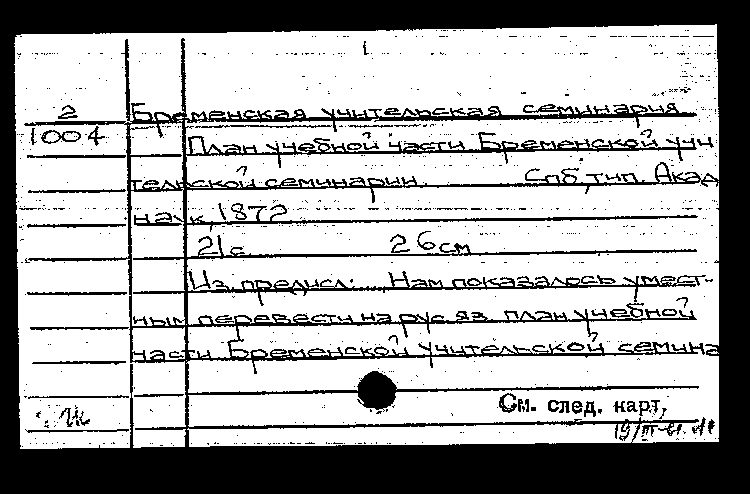 1
2 Бременская учительская семинария
1004 План учебной части Бременской учи
тельской семинарии. Спб, тип. Акад
наук, 1872
21 с. 26 см
Из предисл.: Нам показалось умест-
ным перевести на рус. яз. план учебной
части Бременской учительской семина
См. след. карт,